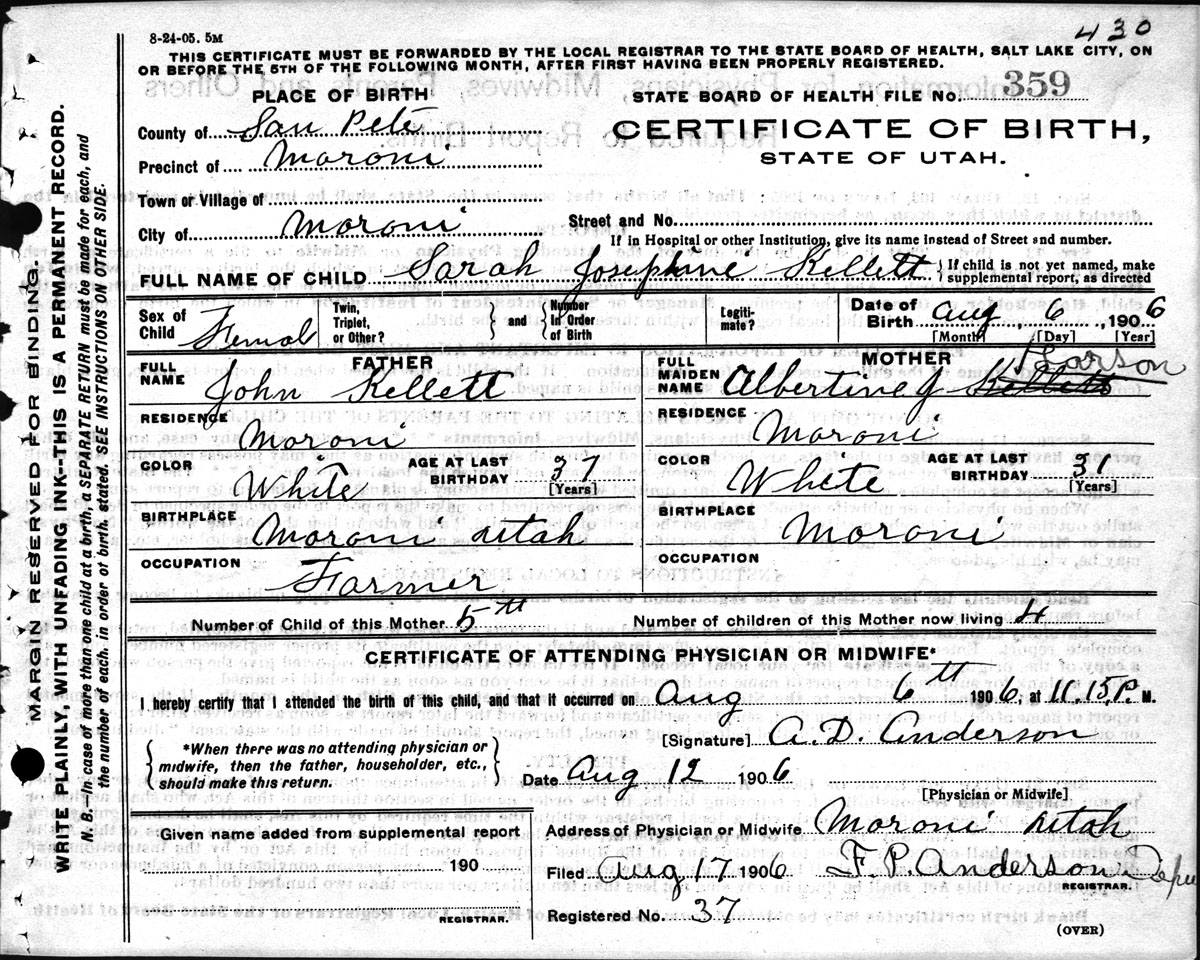 430
8-24-05. 5M
THIS CERTIFICATE MUST BE FORWARDED BY THE LOCAL REGISTRAR TO THE STATE BOARD OF HEALTH, SALT LAKE CITY, ON
OR BEFORE THE 5TH OF THE FOLLOWING MONTH, AFTER FIRST HAVING BEEN PROPERLY REGISTERED.
PLACE OF BIRTH
STATE BOARD OF HEALTH FILE No. 359
County of San Pete
CERTIFICATE OF BIRTH,
Precinct of Moroni
STATE OF UTAH.
Town or Village of
City of Moroni
Street and No.
If in Hospital or other Institution, give its name instead of Street and number.
FULL NAME OF CHILD Sarah Josephine Kellett { If child is not yet named, make
supplemental report, as directed
Sex of Child Femal
Twin, Triplet, or Other? } and { Number In Order of Birth
Legiti-mate?
Date of Birth Aug 6, 1906
[Month] [Day] [Year]
FATHER
FULL NAME John Kellett
RESIDENCE Moroni
COLOR White
AGE AT LAST BIRTHDAY 37
[Years]
BIRTHPLACE Moroni utah
OCCUPATION Farmer
MOTHER
FULL MAIDEN NAME Albertine J Kellett Larson
RESIDENCE Moroni
COLOR White
AGE AT LAST BIRTHDAY 31
[Years]
BIRTHPLACE Moroni
OCCUPATION
Number of Child of this Mother 5th
Number of children of this Mother now living 4
CERTIFICATE OF ATTENDING PHYSICIAN OR MIDWIFE*
I hereby certify that I attended the birth of this child, and that it occurred on Aug 6th 1906, at 11.15 P. M.
[Signature] A. D. Anderson
{ *When there was no attending physician or
midwife, then the father, householder, etc.,
should make this return. }
Date Aug 12 1906
[Physician or Midwife]
Given name added from supplemental report
190
REGISTRAR.
Address of Physician or Midwife Moroni utah
Filed Aug 17 1906 F. P. Anderson Depu
REGISTRAR.
Registered No. 37
(OVER)
MARGIN RESERVED FOR BINDING.
WRITE PLAINLY, WITH UNFADING INK--THIS IS A PERMANENT RECORD.
N. B.--In case of more than one child at a birth, a SEPARATE RETURN must be made for each, and
the number of each, in order of birth, stated. SEE INSTRUCTIONS ON OTHER SIDE.